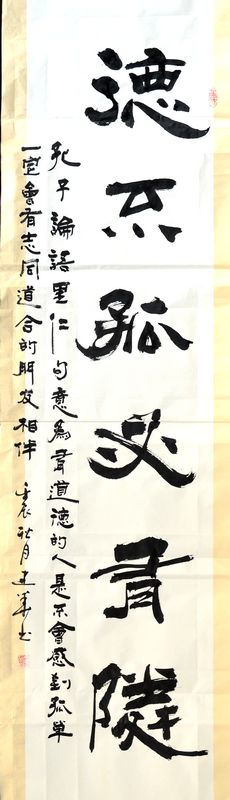 德不孤必有隣
孔子論語里仁句意為有道德的人是不會感到孤單
一定會有志同道合的朋友相伴 壬辰秋月建華书